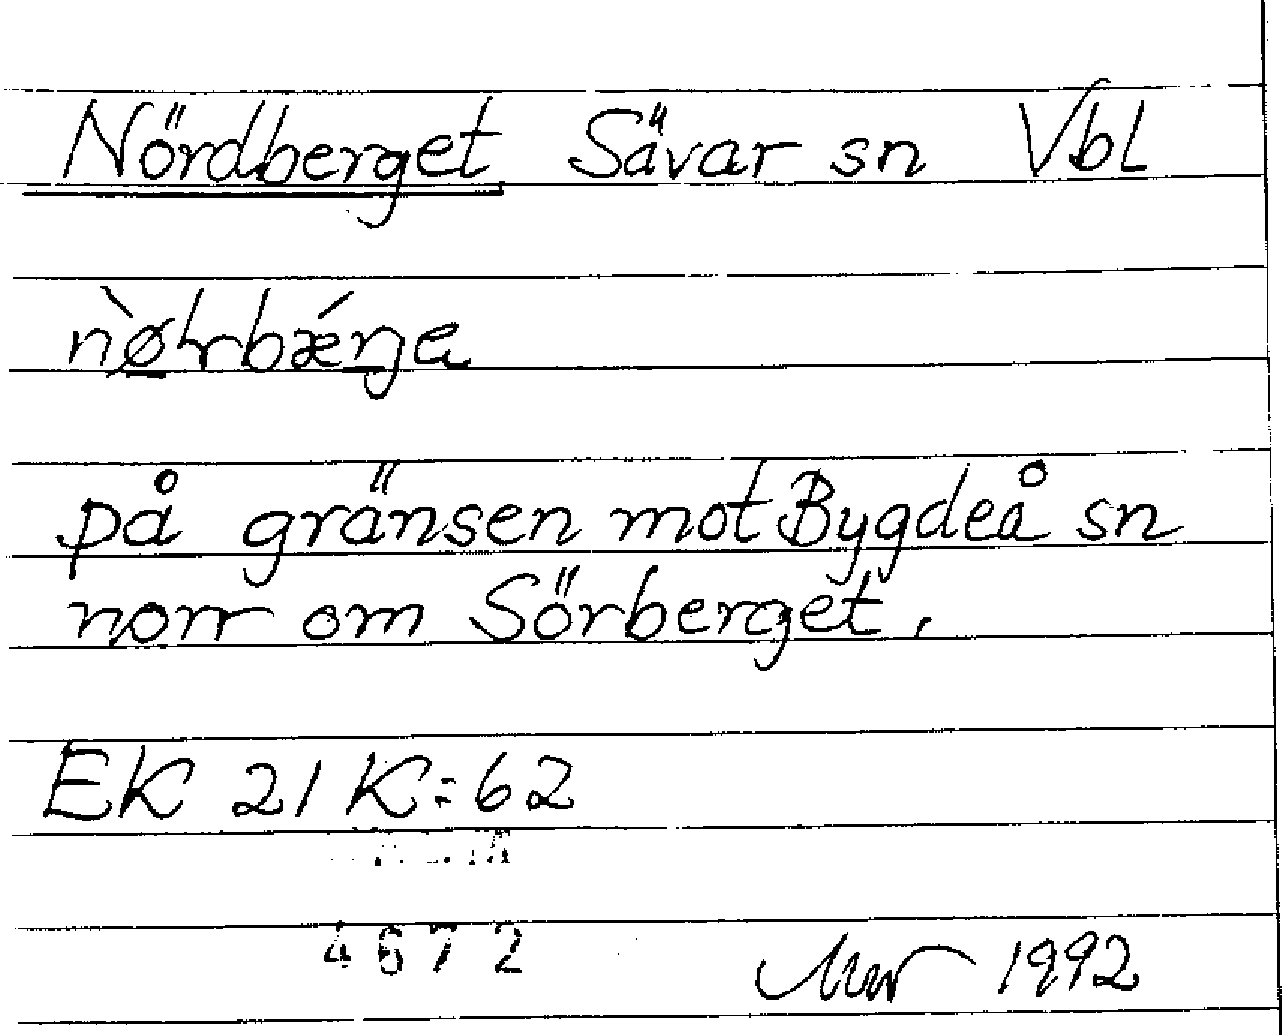 Nördberget Sävar sn Vbl
nø̀rbǽrje
på gränsen mot Bygdeå sn
norr om Sörberget.
EK 21 K:62
4672
1992